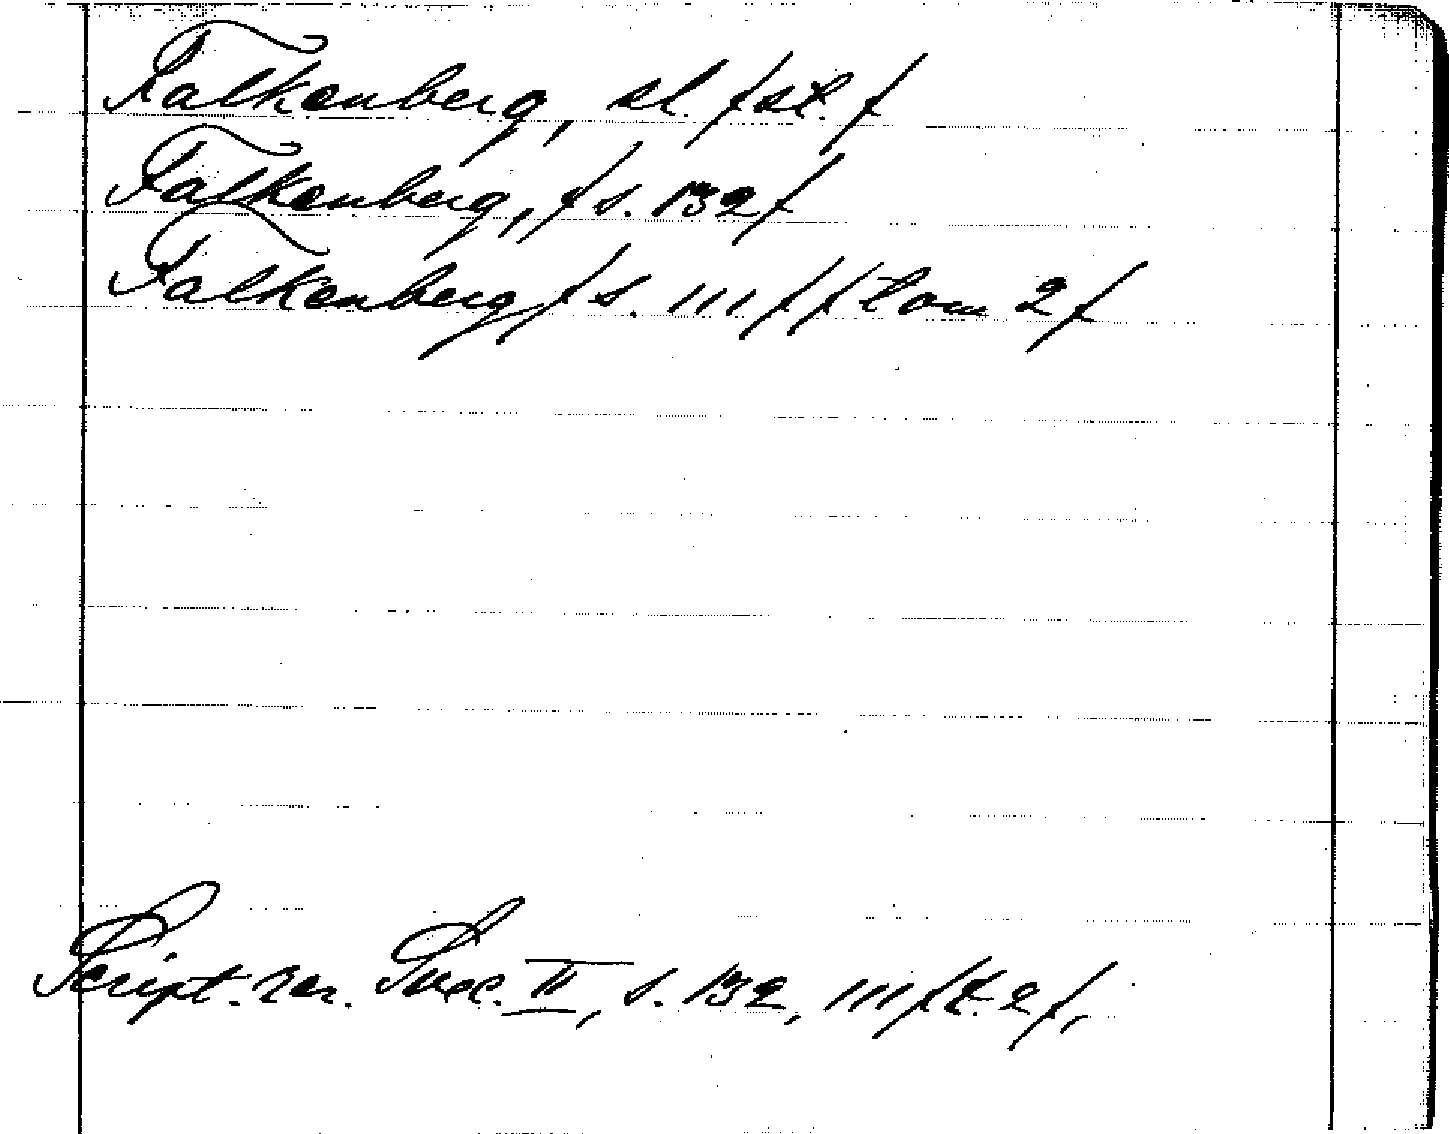 Falkenberg, sl. /st./
Falkenberg, /s. 132/
Falkenberg /s. 111/ /tom 2/
Script. rer. Svec. II, s. 132, 111 /t. 2/,